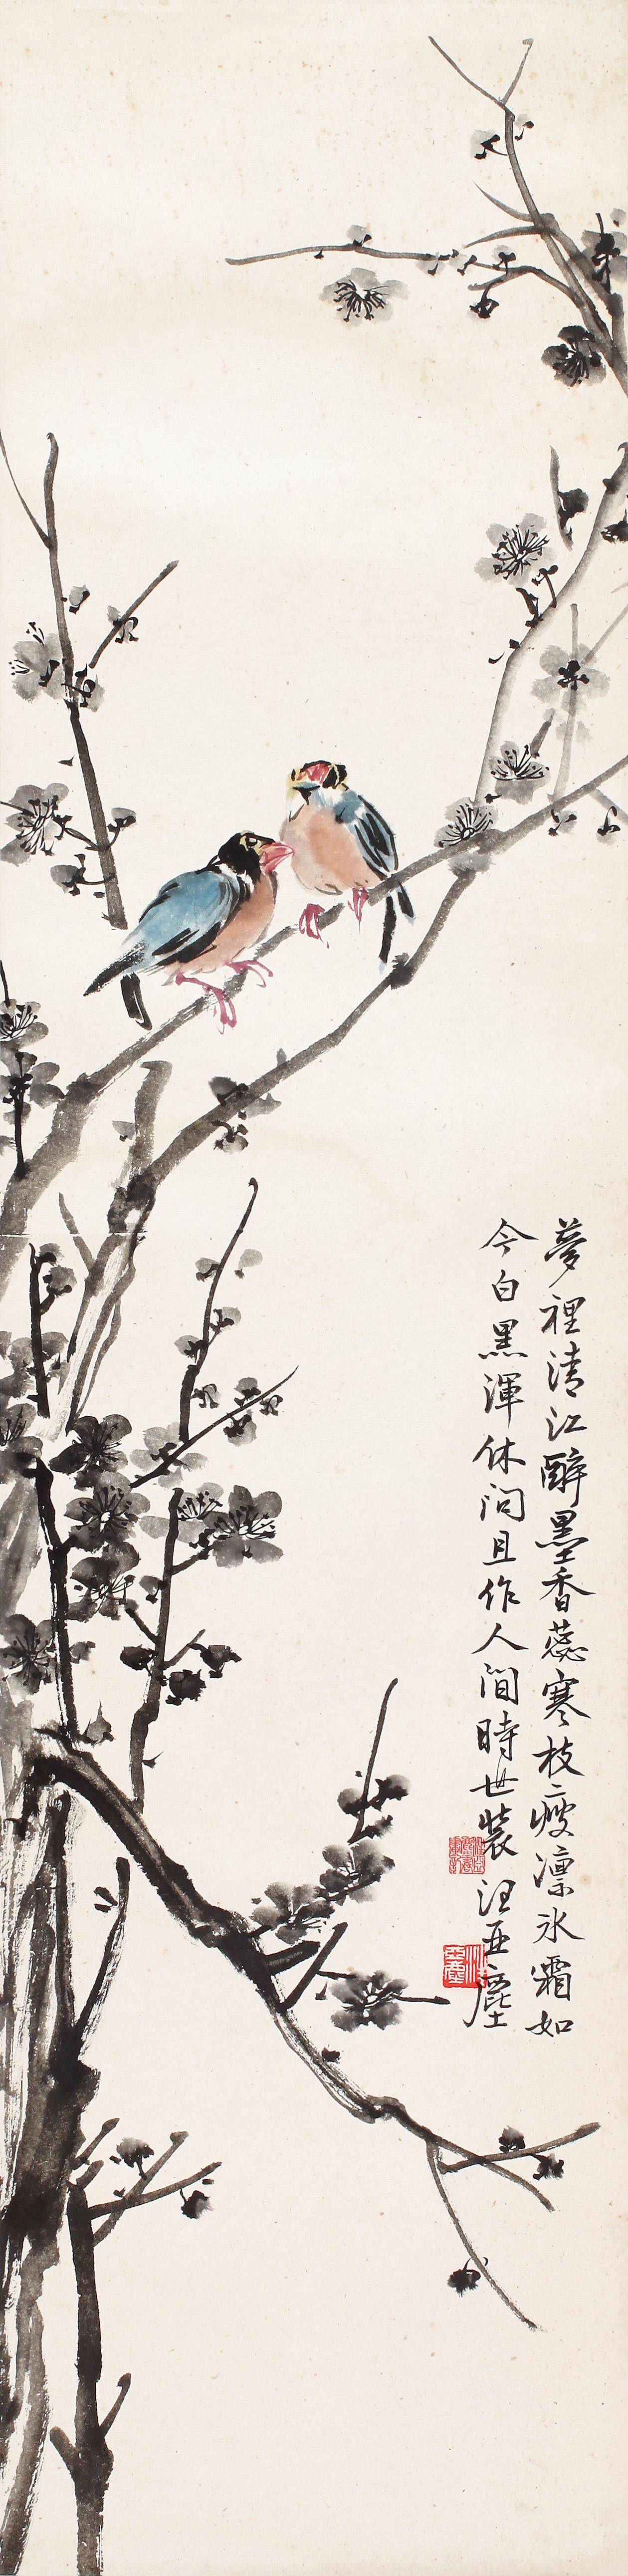 夢裡清江醉墨香蕊寒枝瘦凛氷霜如
今白黒渾休問且作人間時世裝汪亞塵